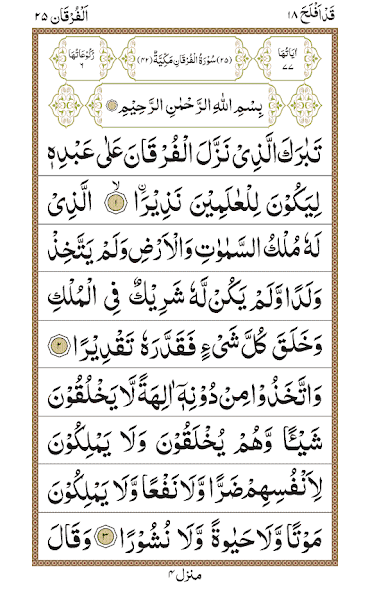 قَدْ اَفْلَحَ ١٨
اَلْفُرْقَان ٢٥
اٰيَاتُهَا ٧٧
(٢٥) سُوْرَةُ الْفُرْقَانِ مَكِّيَّةٌ (٤٢)
رُكُوْعَاتُهَا ٦
بِسْمِ اللهِ الرَّحْمٰنِ الرَّحِيْمِ
تَبٰرَكَ الَّذِىْ نَزَّلَ الْفُرْقَانَ عَلٰى عَبْدِهٖ
لِيَكُوْنَ لِلْعٰلَمِيْنَ نَذِيْرًا ۙ‏ ١ ۙ الَّذِىْ
لَهٗ مُلْكُ السَّمٰوٰتِ وَالْاَرْضِ وَلَمْ يَتَّخِذْ
وَلَدًا وَّلَمْ يَكُنْ لَّهٗ شَرِيْكٌ فِى الْمُلْكِ
وَخَلَقَ كُلَّ شَىْءٍ فَقَدَّرَهٗ تَقْدِيْرًا ٢
وَاتَّخَذُوْا مِنْ دُوْنِهٖۤ اٰلِهَةً لَّا يَخْلُقُوْنَ
شَيْـًٔا وَّهُمْ يُخْلَقُوْنَ وَلَا يَمْلِكُوْنَ
لِاَنْفُسِهِمْ ضَرًّا وَّلَا نَفْعًا وَّلَا يَمْلِكُوْنَ
مَوْتًا وَّلَا حَيٰوةً وَّلَا نُشُوْرًا ٣ وَقَالَ
منزل ۴